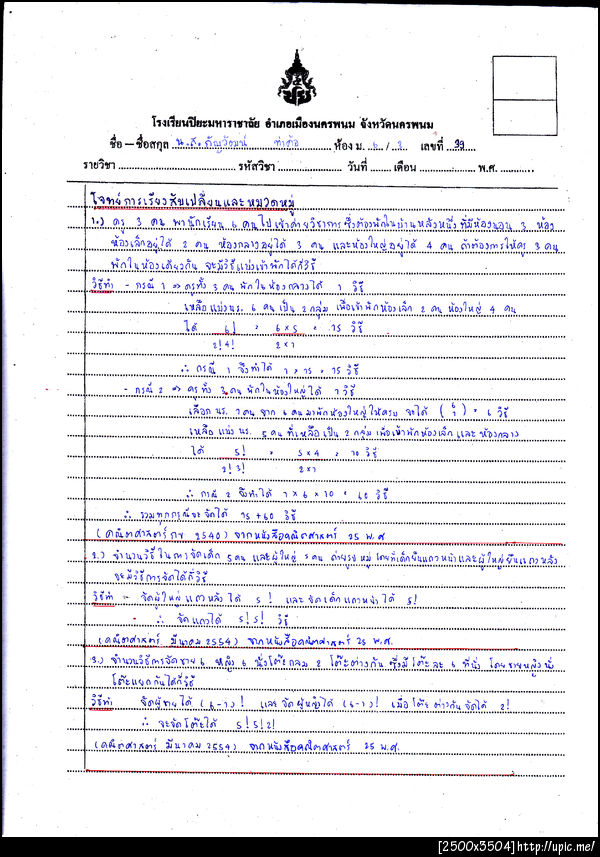 โรงเรียนปิยะมหาราชาลัย อำเภอเมืองนครพนม จังหวัดนครพนม
ชื่อ – ชื่อสกุล น.ส. ห้อง ม. 6 / 2 เลขที่ 39
รายวิชา รหัสวิชา วันที่ เดือน พ.ศ.
โจทย์การเรียงสับเปลี่ยนและหมวดหมู่
1.) ครู 3 คน พานักเรียน 6 คนไปเข้าค่ายวิชาการ ซึ่งต้องพักในบ้านหลังหนึ่ง ที่มีห้องนอน 3 ห้อง
ห้องเล็กอยู่ได้ 2 คน ห้องกลางอยู่ได้ 3 คน และห้องใหญ่อยู่ได้ 4 คน ถ้าต้องการให้ครู 3 คน
พักในห้องเดียวกัน จะมีวิธีแบ่งเข้าพักได้กี่วิธี
วิธีทำ - กรณี 1 => ครูทั้ง 3 คน พักในห้องกลางได้ 1 วิธี
เหลือแบ่ง นร. 6 คน เป็น 2 กลุ่ม เพื่อเข้าพักห้องเล็ก 2 คน ห้องใหญ่ 4 คน
ได้ 6! = 6×5 = 15 วิธี
2!4! 2×1
∴ กรณี 1 จึงทำได้ 1 × 15 = 15 วิธี
- กรณี 2 => ครูทั้ง 3 คน พักในห้องใหญ่ได้ 1 วิธี
เลือก นร. 1 คน จาก 6 คน มาพักห้องใหญ่ให้ครบ จะได้ (6 1) = 6 วิธี
เหลือ แบ่ง นร. 5 คน ที่เหลือเป็น 2 กลุ่ม เพื่อเข้าพักห้องเล็ก และ ห้องกลาง
ได้ 5! = 5×4 = 10 วิธี
2!3! 2×1
∴ กรณี 2 จึงทำได้ 1 × 6 × 10 = 60 วิธี
∴ รวมทุกกรณีจะจัดได้ 15 + 60 วิธี
(คณิตศาสตร์ กข 2540) จากหนังสือคณิตศาสตร์ 25 พ.ศ
2.) จำนวนวิธีในการจัดเด็ก 5 คน และผู้ใหญ่ 5 คน ถ่ายรูปหมู่ โดยที่เด็กยืนแถวหน้าและผู้ใหญ่ยืนแถวหลัง
จะมีวิธีการจัดได้กี่วิธี
วิธีทำ - จัดผู้ใหญ่แถวหลังได้ 5! และจัดเด็กแถวหน้าได้ 5!
∴ จัดแถวได้ 5!5! วิธี
(คณิตศาสตร์ มีนาคม 2554) จากหนังสือคณิตศาสตร์ 25 พ.ศ.
3.) จำนวนวิธีการจัดชาย 6 หญิง 6 นั่งโต๊ะกลม 2 โต๊ะต่างกัน ซึ่งมีโต๊ะละ 6 ที่นั่ง โดยชายหญิงนั่ง
โต๊ะแยกกันได้กี่วิธี
วิธีทำ จัดผู้ชายได้ (6-1)! และจัดผู้หญิงได้ (6-1)! เมื่อโต๊ะต่างกันจัดได้ 2!
∴ จะจัดโต๊ะได้ 5!5!2!
(คณิตศาสตร์ มีนาคม 2554) จากหนังสือคณิตศาสตร์ 25 พ.ศ.
[2500x3504]http://upic.me/